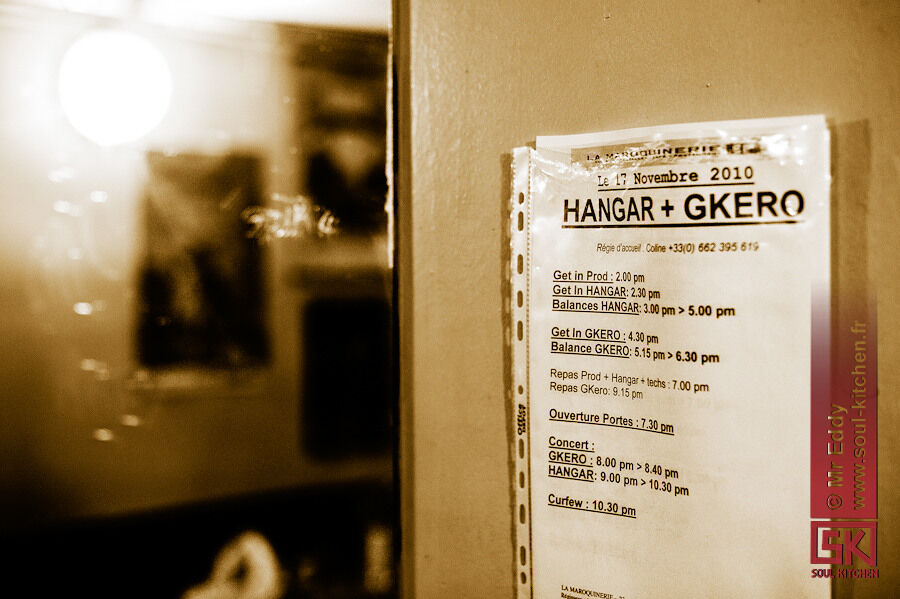 LA MAROQUINERIE
Le 17 Novembre 2010
HANGAR + GKERO
Régie d'accueil : Coline +33(0) 662 395 619
Get in Prod : 2.00 pm
Get In HANGAR: 2.30 pm
Balances HANGAR: 3.00 pm > 5.00 pm
Get In GKERO : 4.30 pm
Balance GKERO: 5.15 pm > 6.30 pm
Repas Prod + Hangar + techs : 7.00 pm
Repas GKero: 9.15 pm
Ouverture Portes : 7.30 pm
Concert :
GKERO : 8.00 pm > 8.40 pm
HANGAR: 9.00 pm > 10.30 pm
Curfew : 10.30 pm
LA MAROQUINERIE
OFFICE DEPOT
© Mr Eddy
www.soul-kitchen.fr
SK
SOUL KITCHEN